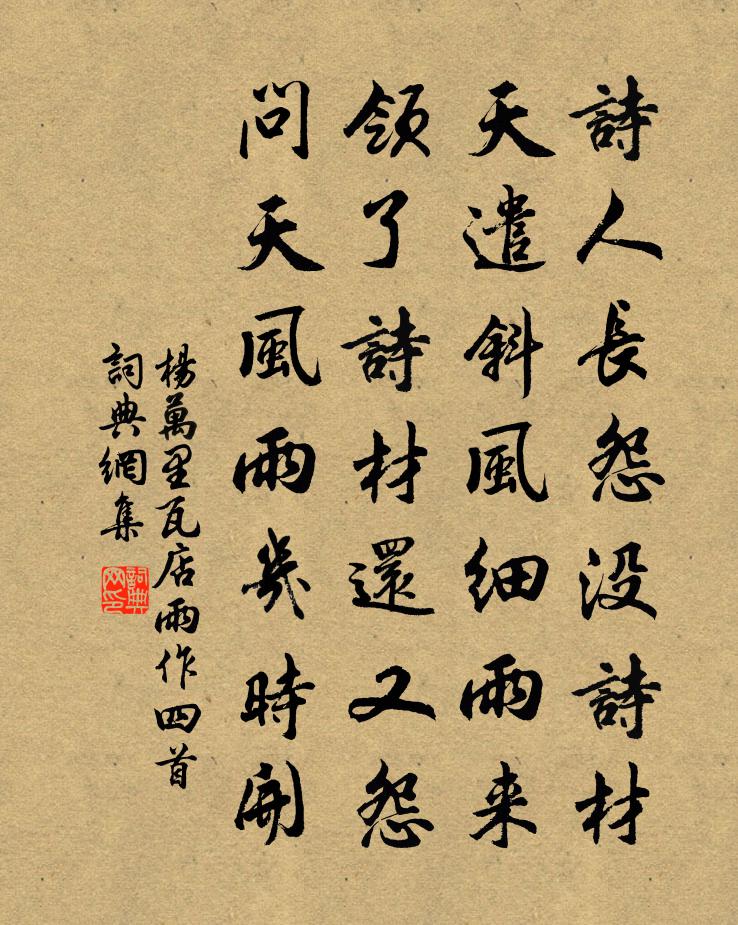 詩人長怨没詩材
天遣斜風細雨来
領了詩材還又怨
問天風雨幾時開
楊萬里瓦店雨作四首
詞典網集
詞典网印